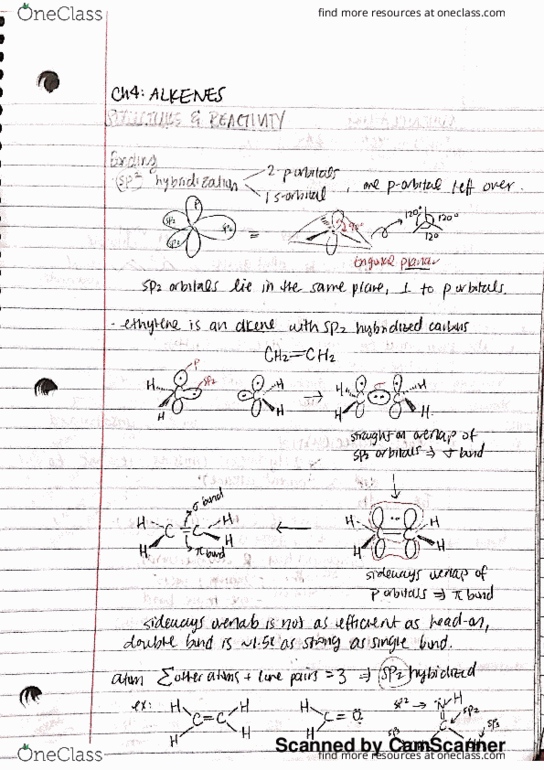 OneClass
find more resources at oneclass.com
Ch4: ALKENES
STRUCTURE & REACTIVITY
Bonding
(sp²) hybridization
2-p orbitals
1 s-orbital
, one p-orbital left over.
P
sp2
sp2
sp2
=
90°
120°
120°
120
trigonal planar
sp2 orbitals lie in the same plane, ⊥ to p orbitals.
- ethylene is an alkene with sp2 hybridized carbons
CH2=CH2
P
sp2
H
H
H
H
→
H
H
σ
H
H
straight on overlap of
sp3 orbitals ⇒ σ bond
σ bond
H
H
C=C
H
H
π bond
←
H
H
H
H
sideways overlap of
p orbitals ⇒ π bond
sideways overlab is not as efficient as head-on,
double bond is ~1.5x as strong as single bond.
atom Σ other atoms + lone pairs = 3 ⇒ sp2 hybridized
ex:
H
H
C=C
H
H
H
C=O
H
sp2 →
N
H
sp2
C
sp3
sp3
Scanned by CamScanner
OneClass
find more resources at oneclass.com